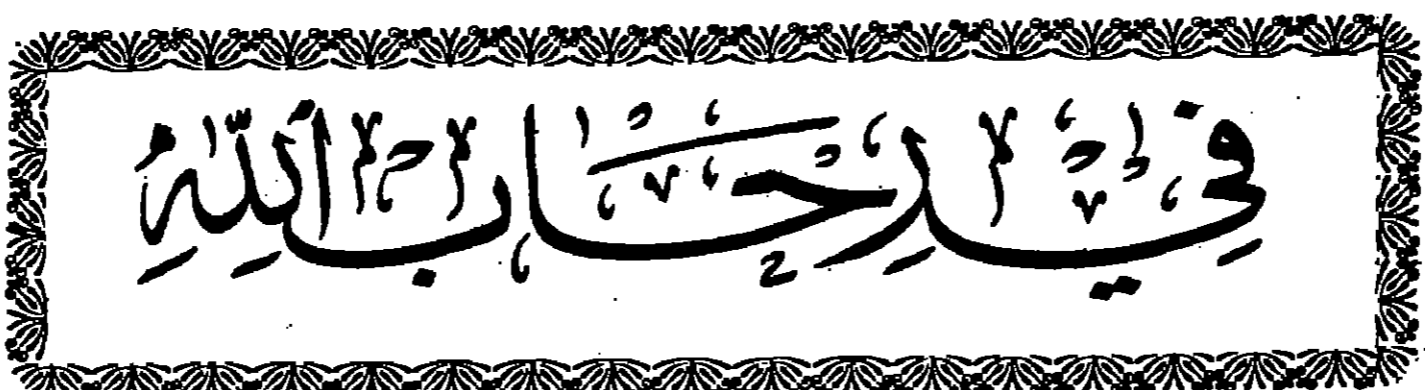 في رِحَابِ اللّٰهِ